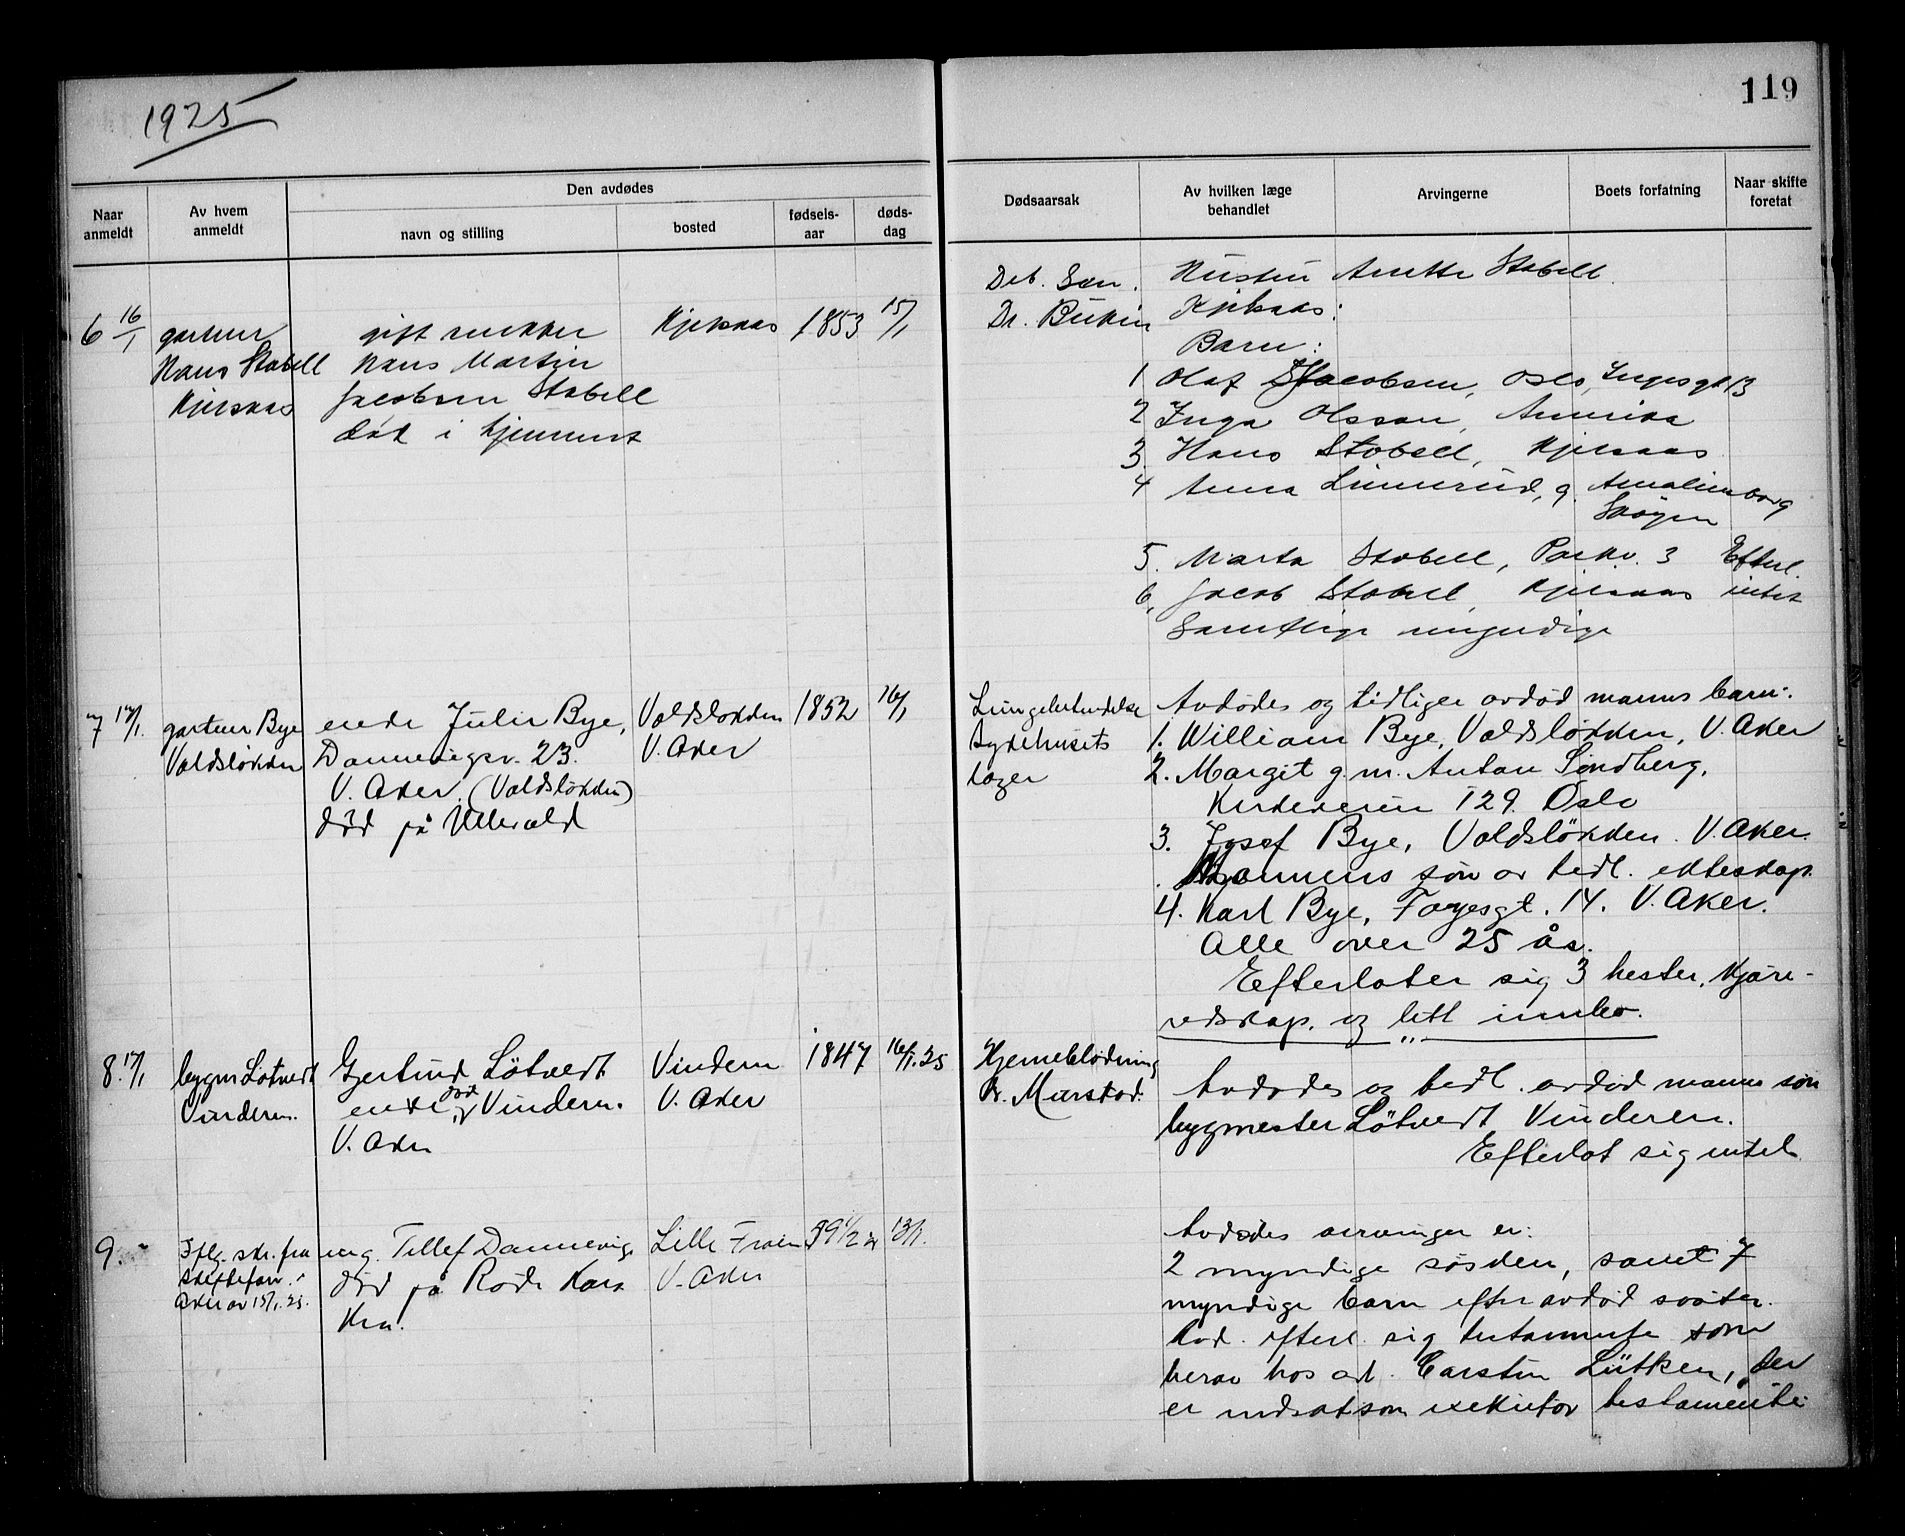 1925
119
Den avdødes
Naar anmeldt
Av hvem anmeldt
navn og stilling
bosted
fødsels-aar
døds-dag
Dødsaarsak
Av hvilken læge behandlet
Arvingerne
Boets forfatning
Naar skifte foretat
6 16/1
gartner
Hans Stabell
Kjelsaas
gift snekker
Hans Martin
Jacobsen Stabell
død i hjemmet
Kjelsaas
1853
15/1
Deb. Sen.
Dr.
Hustru Anette Stabell
Kjelsaas:
Barn:
1 Olaf Jacobsen, Oslo,
2 Inga Olsson, Amerika
3. Hans Stabell, Kjelsaas
4 Anna Linnerud, g. Amalienborg
Skøyen
5. Marta Stabell, Parkv. 3 Efterl.
6. Jacob Stabell, Kjelsaas intet
Samtlige myndige
7 17/1.
gartner Bye
Voldsløkken
enke Julie Bye,
Dannevigsv. 23.
V. Aker. (Voldsløkken)
død på Ullevold
Voldsløkken
V. Aker
1852
16/1
Lungebetendelse
Sykehusets
læger
Avdødes og tidligere avdød manns barn:
1. William Bye, Voldsløkken, V. Aker
2. Margit g.m. Anton Sindberg,
Kirkeveien 129. Oslo
3. Josef Bye, Voldsløkken. V. Aker.
Mannens søn av tidl. ekteskap.
4. Karl Bye, Fagesgt. 14. V. Aker.
Alle over 25 år.
Efterlater sig 3 hester, kjøre-
redskap. og litt innbo.
8. 17/1
bygm Løtvedt
Vinderen.
Gjertrud Løtvedt
enke død på Vinderen.
V. Aker
Vinderen
V. Aker
1847
16/1.25
Hjerneblødning
Dr. Murstad.
Avdødes og tidl. avdød manns søn
bygmester Løtvedt Vinderen.
Efterlot sig intet
9.
Iflg. skr. fra
Skiftefor. i
Aker av 15/1.25.
ung. Tellef Dannevig
død på Røde Kors
Kra.
Lille Frøen
V. Aker
59 1/2 år
13/1.
Avdødes arvinger er:
2 myndige søsken, samt 7
myndige barn efter avdød søster.
Avd. efterl. sig testamente som
beror hos adv. Carsten Lütken, der
er indsat som exekutor testamenti